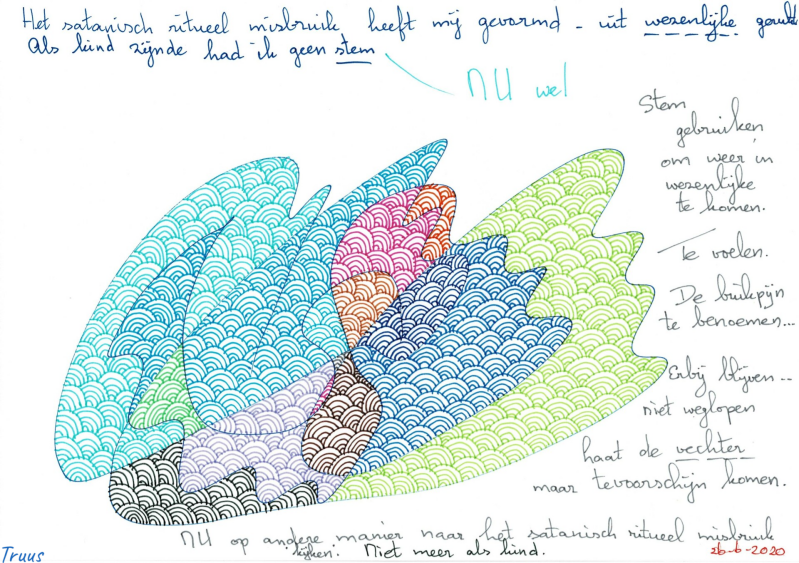 Het satanisch ritueel misbruik heeft mij gevormd - uit wezenlijke
Als kind zijnde had ik geen stem
NU wel
Stem
gebruiken
om weer in
wezenlijke
te komen.
Te voelen.
De buikpijn
te benoemen...
Erbij blijven --
niet weglopen
haat de vechter
maar tevoorschijn komen.
NU op andere manier naar het satanisch ritueel misbruik
kijken. Niet meer als kind.
26-6-2020
Truus